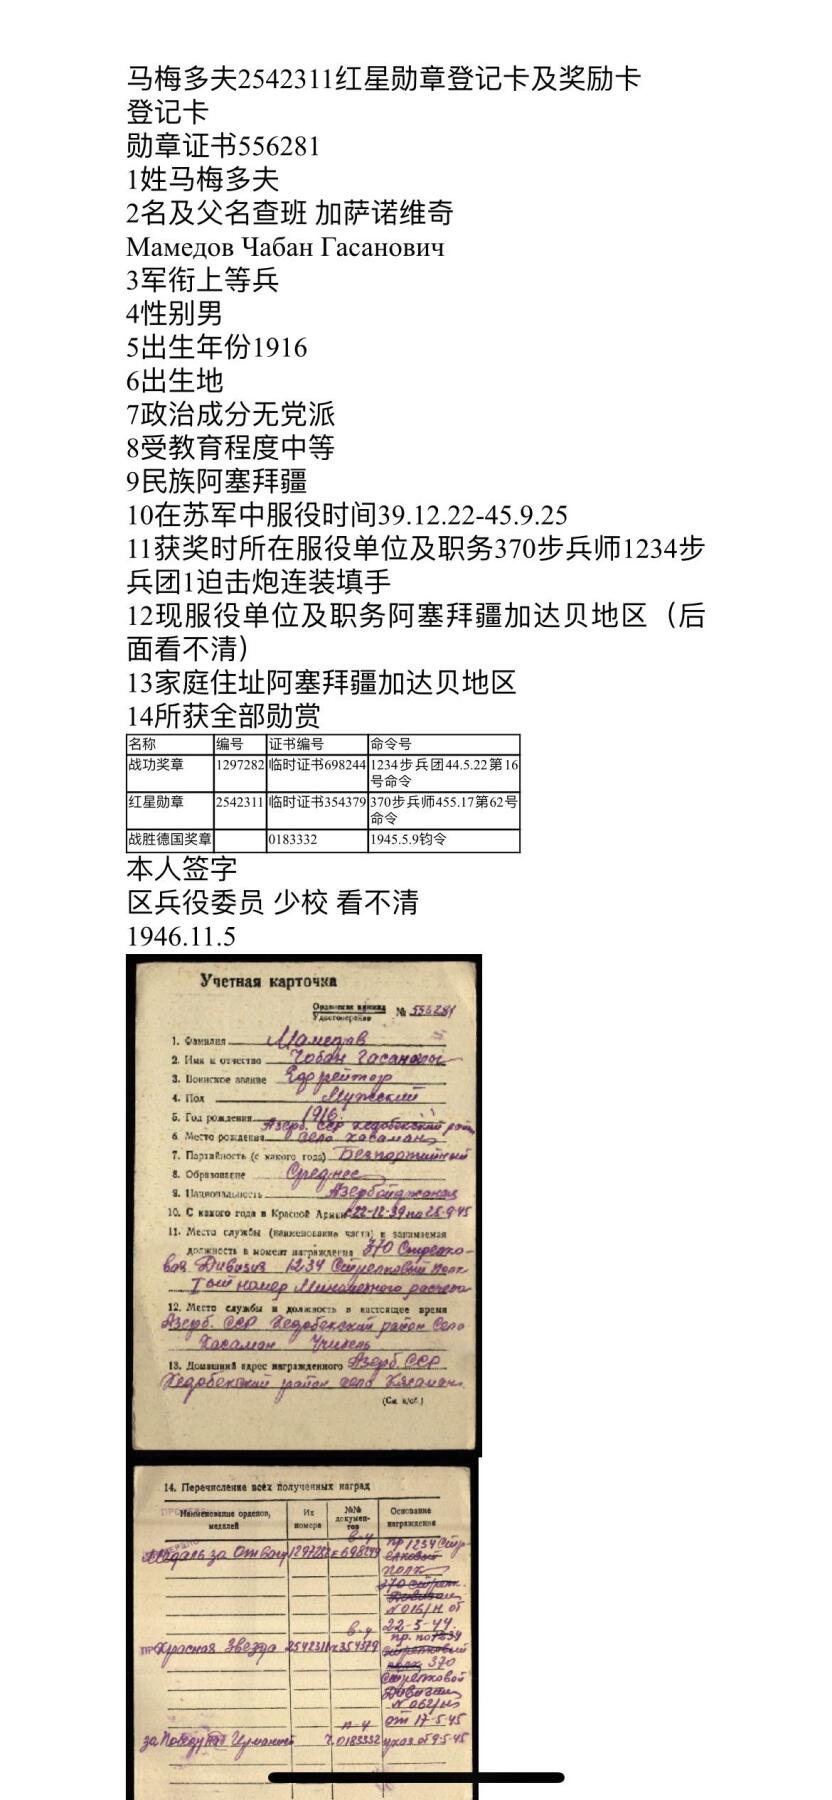 马梅多夫2542311红星勋章登记卡及奖励卡
登记卡
勋章证书556281
1姓马梅多夫
2名及父名查班 加萨诺维奇
Мамедов Чабан Гасанович
3军衔上等兵
4性别男
5出生年份1916
6出生地
7政治成分无党派
8受教育程度中等
9民族阿塞拜疆
10在苏军中服役时间39.12.22-45.9.25
11获奖时所在服役单位及职务370步兵师1234步
兵团1迫击炮连装填手
12现服役单位及职务阿塞拜疆加达贝地区（后
面看不清）
13家庭住址阿塞拜疆加达贝地区
14所获全部勋赏
名称 编号 证书编号 命令号
战功奖章 1297282 临时证书698244 1234步兵团44.5.22第16
号命令
红星勋章 2542311 临时证书354379 370步兵师455.17第62号
命令
战胜德国奖章 0183332 1945.5.9钧令
本人签字
区兵役委员 少校 看不清
1946.11.5
Учетная карточка
Орденская книжка
Удостоверение № 556281
1. Фамилия Мамедов
2. Имя и отчество Чобан Гасан
3. Воинское звание Ефрейтор
4. Пол Мужской
5. Год рождения 1916
Азерб. ССР Кедабекский район
6. Место рождения село Касаман
7. Партийность (с какого года) Безпартийный
8. Образование Среднее
9. Национальность Азербайджанец
10. С какого года в Красной Армии с 22-12-39 по 25-9-45
11. Место службы (наименование части) и занимаемая
должность в момент награждения 370 Стрелко-
вая Дивизия 1234 Стрелковый полк
номер Минометного расчета
12. Место службы и должность в настоящее время
Азерб. ССР Кедабекский район село
Касаман Учитель
13. Домашний адрес награжденного Азерб. ССР
Кедабекский район село Касаман
(См. н/об.)
14. Перечисление всех полученных наград
Наименование орденов, медалей Их номера №№ документов Основание награждения
Медаль за Отвагу 1297282 в-у 698244 пр 1234 Стр
елковый
полк
370 стрелк.
Дивизии
№016/н от
22-5-44.
Красная Звезда 2542311 в-у 354379 пр. по 1234
стрелковый
полк 370
Стрелковой
Дивизии
№062/н
от 17-5-45
за Победу над Германией 0183332 указ от 9-5-45